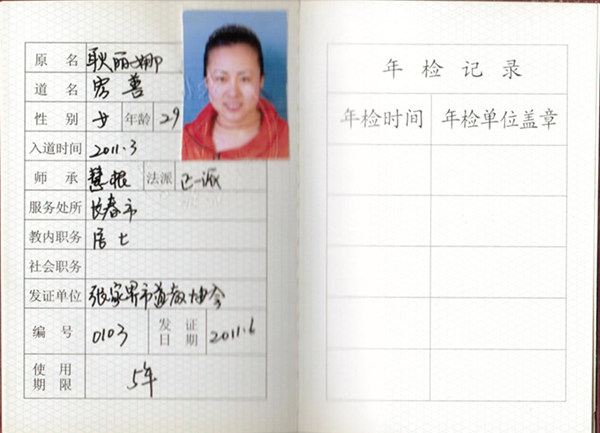 原名 耿丽娜
道名 善
性别 女 年龄 29
入道时间 2011.3
师承 慧根 法派 正一派
服务处所 长春市
教内职务 居士
社会职务
发证单位 张家界市道教协会
编号 0103 发证日期 2011.6
使用期限 5年
年检记录
年检时间 年检单位盖章